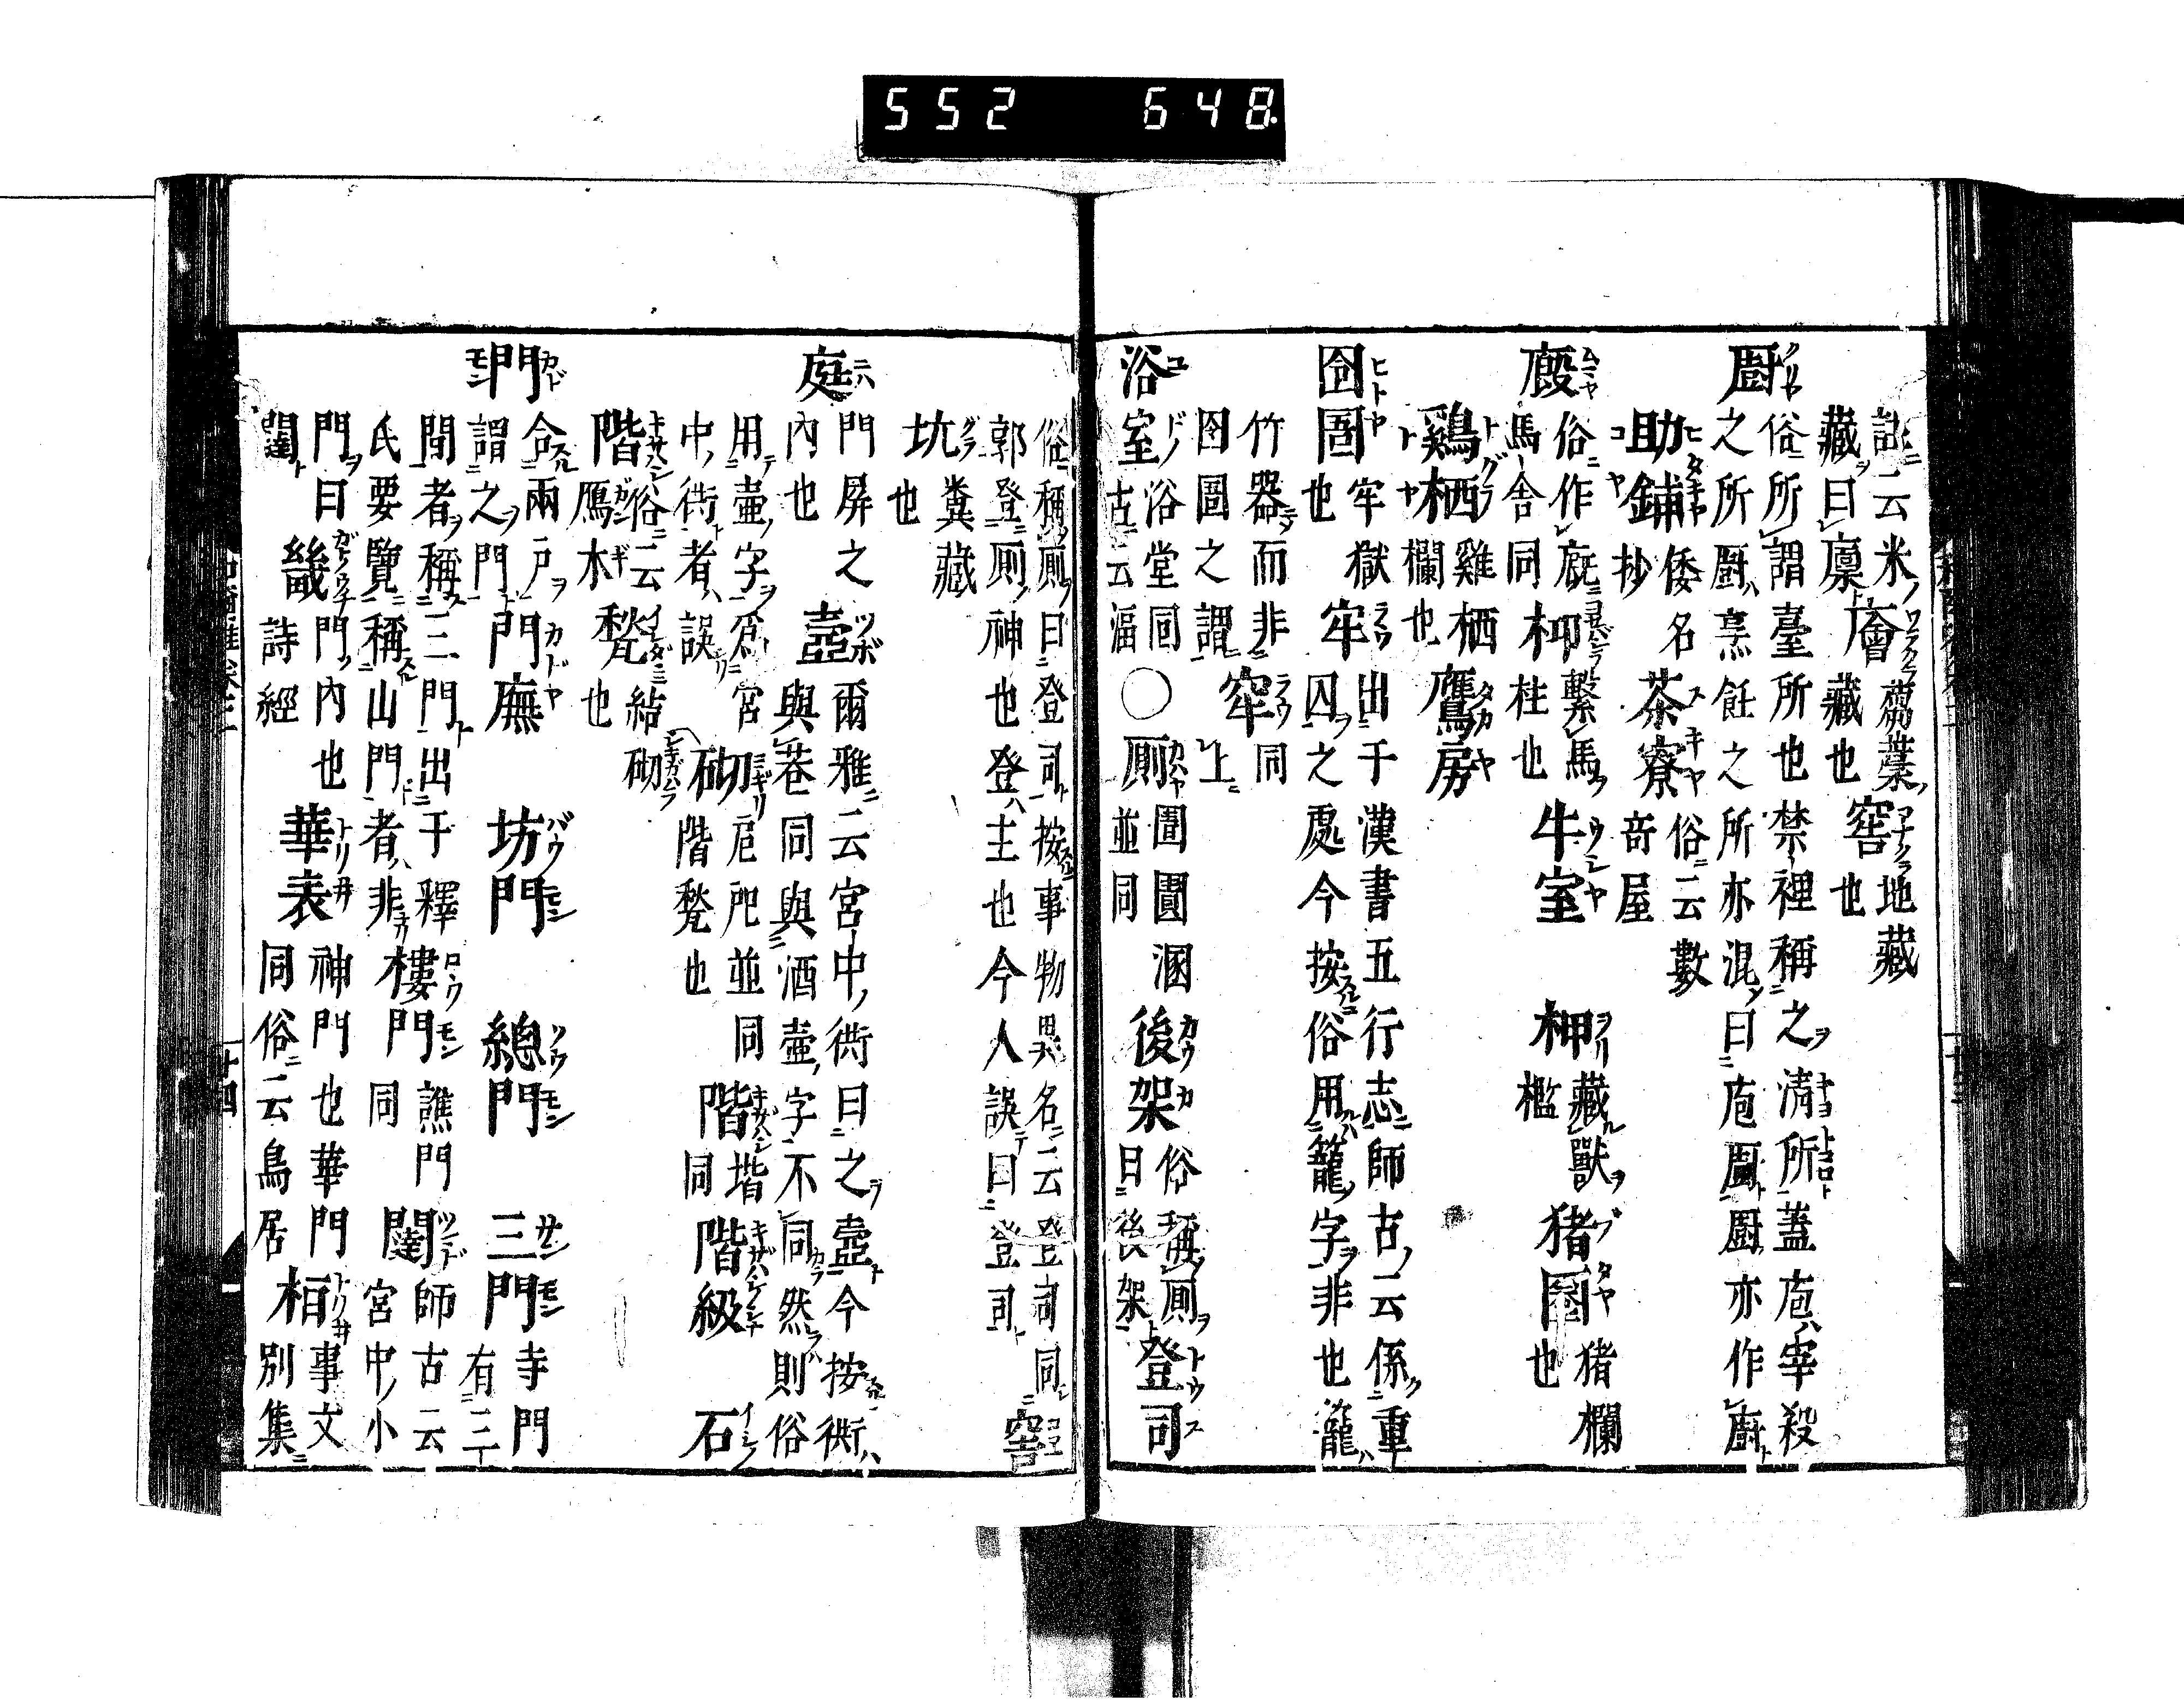 552 648.
註云米
藏曰廩 廥 芻藁
藏也 窖 地藏
也
厨 俗所謂臺所也禁裡稱之清所蓋庖宰殺
之所厨烹飪之所亦混曰庖厨厨亦作廚
助鋪 倭名
抄 茶寮 俗云數
竒屋
廄 俗作廐
馬舍同 枊 繫馬
柱也 牛室 柙 藏獸
檻 猪圂 猪欄
也
鷄栖 雞栖
欄也 鷹房
囹圄 牢獄
也 牢 出于漢書五行志師古云係重
囚之處今按俗用籠字非也籠
竹器而非 窂 同
囹圄之謂 上
浴室 浴堂同
古云湢 ○厠 圊圂溷
並同 後架 俗稱厠
曰後架 登司
俗稱厠曰登司按事物異名云登司同 窖
郭登厠神也登主也今人誤曰登司
坑 糞藏
也
庭 門屏之
内也 壼 爾雅云宮中衖曰之壼今按衖
與巷同與酒壷字不同然則俗
用壷字爲宮 砌 戺戺並同
中衖者誤 階甃也 階 堦
同 階級 石
階 俗云
鴈木 甃 結砌
也
門 合兩戸
謂之門 門廡 坊門 總門 三門 寺門
有三
間者稱三門出于釋 樓門 譙門
同 闥 師古云
宮中小
氏要覽稱山門者非
門曰
闥 畿 門内也
詩經 華表 神門也華門
同俗云鳥居 栢 事文
別集